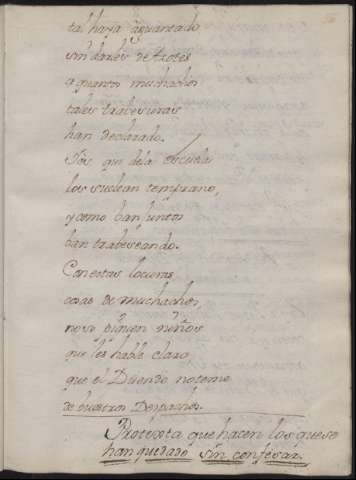 tal haya aguantado
sin darles de Azotes
a quantos muchachos
tales trabesuras
han declarado.
que de la escuela
los sueltan temprano,
y como ban juntos
ban trabeseando.
Con estas locuras
cosas de muchachos
no se niños
que les hable claro
que el Duende no teme
de buestros Despachos.
Protexta que hacen los que se
han quedado sin confesar.